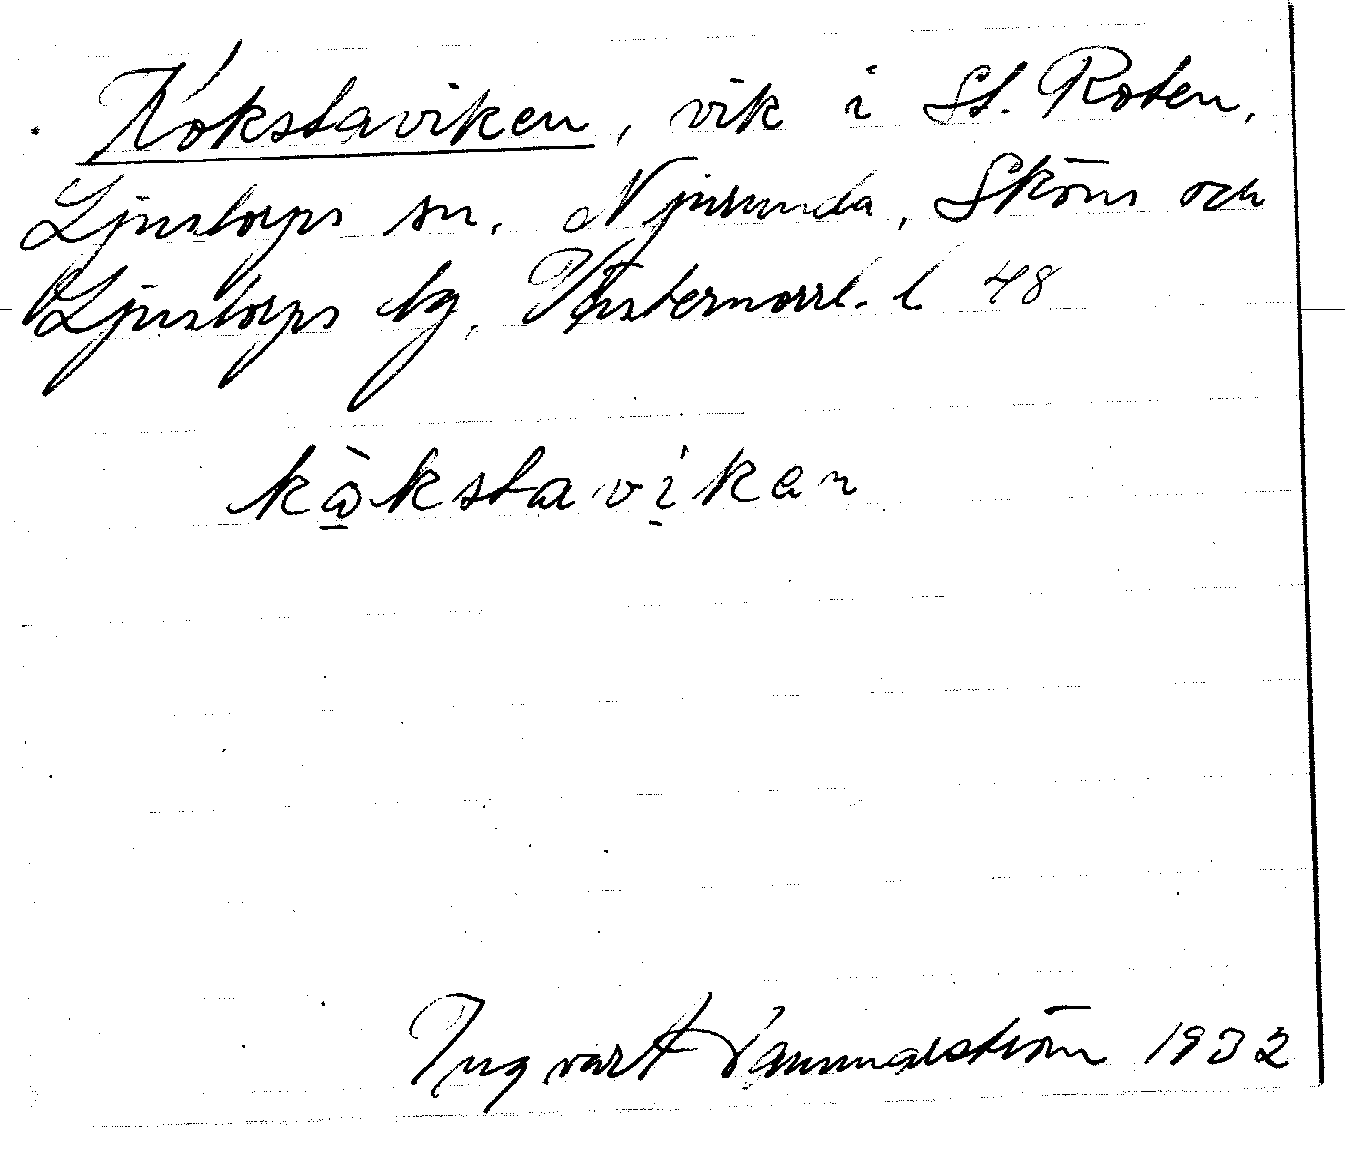 Kokstaviken, vik i St. Roten,
Ljustorps sn. Njurunda, Sköns och
Ljustorps tg, Västernorrl. l 48
kòkstavikan
Ingvar 1932